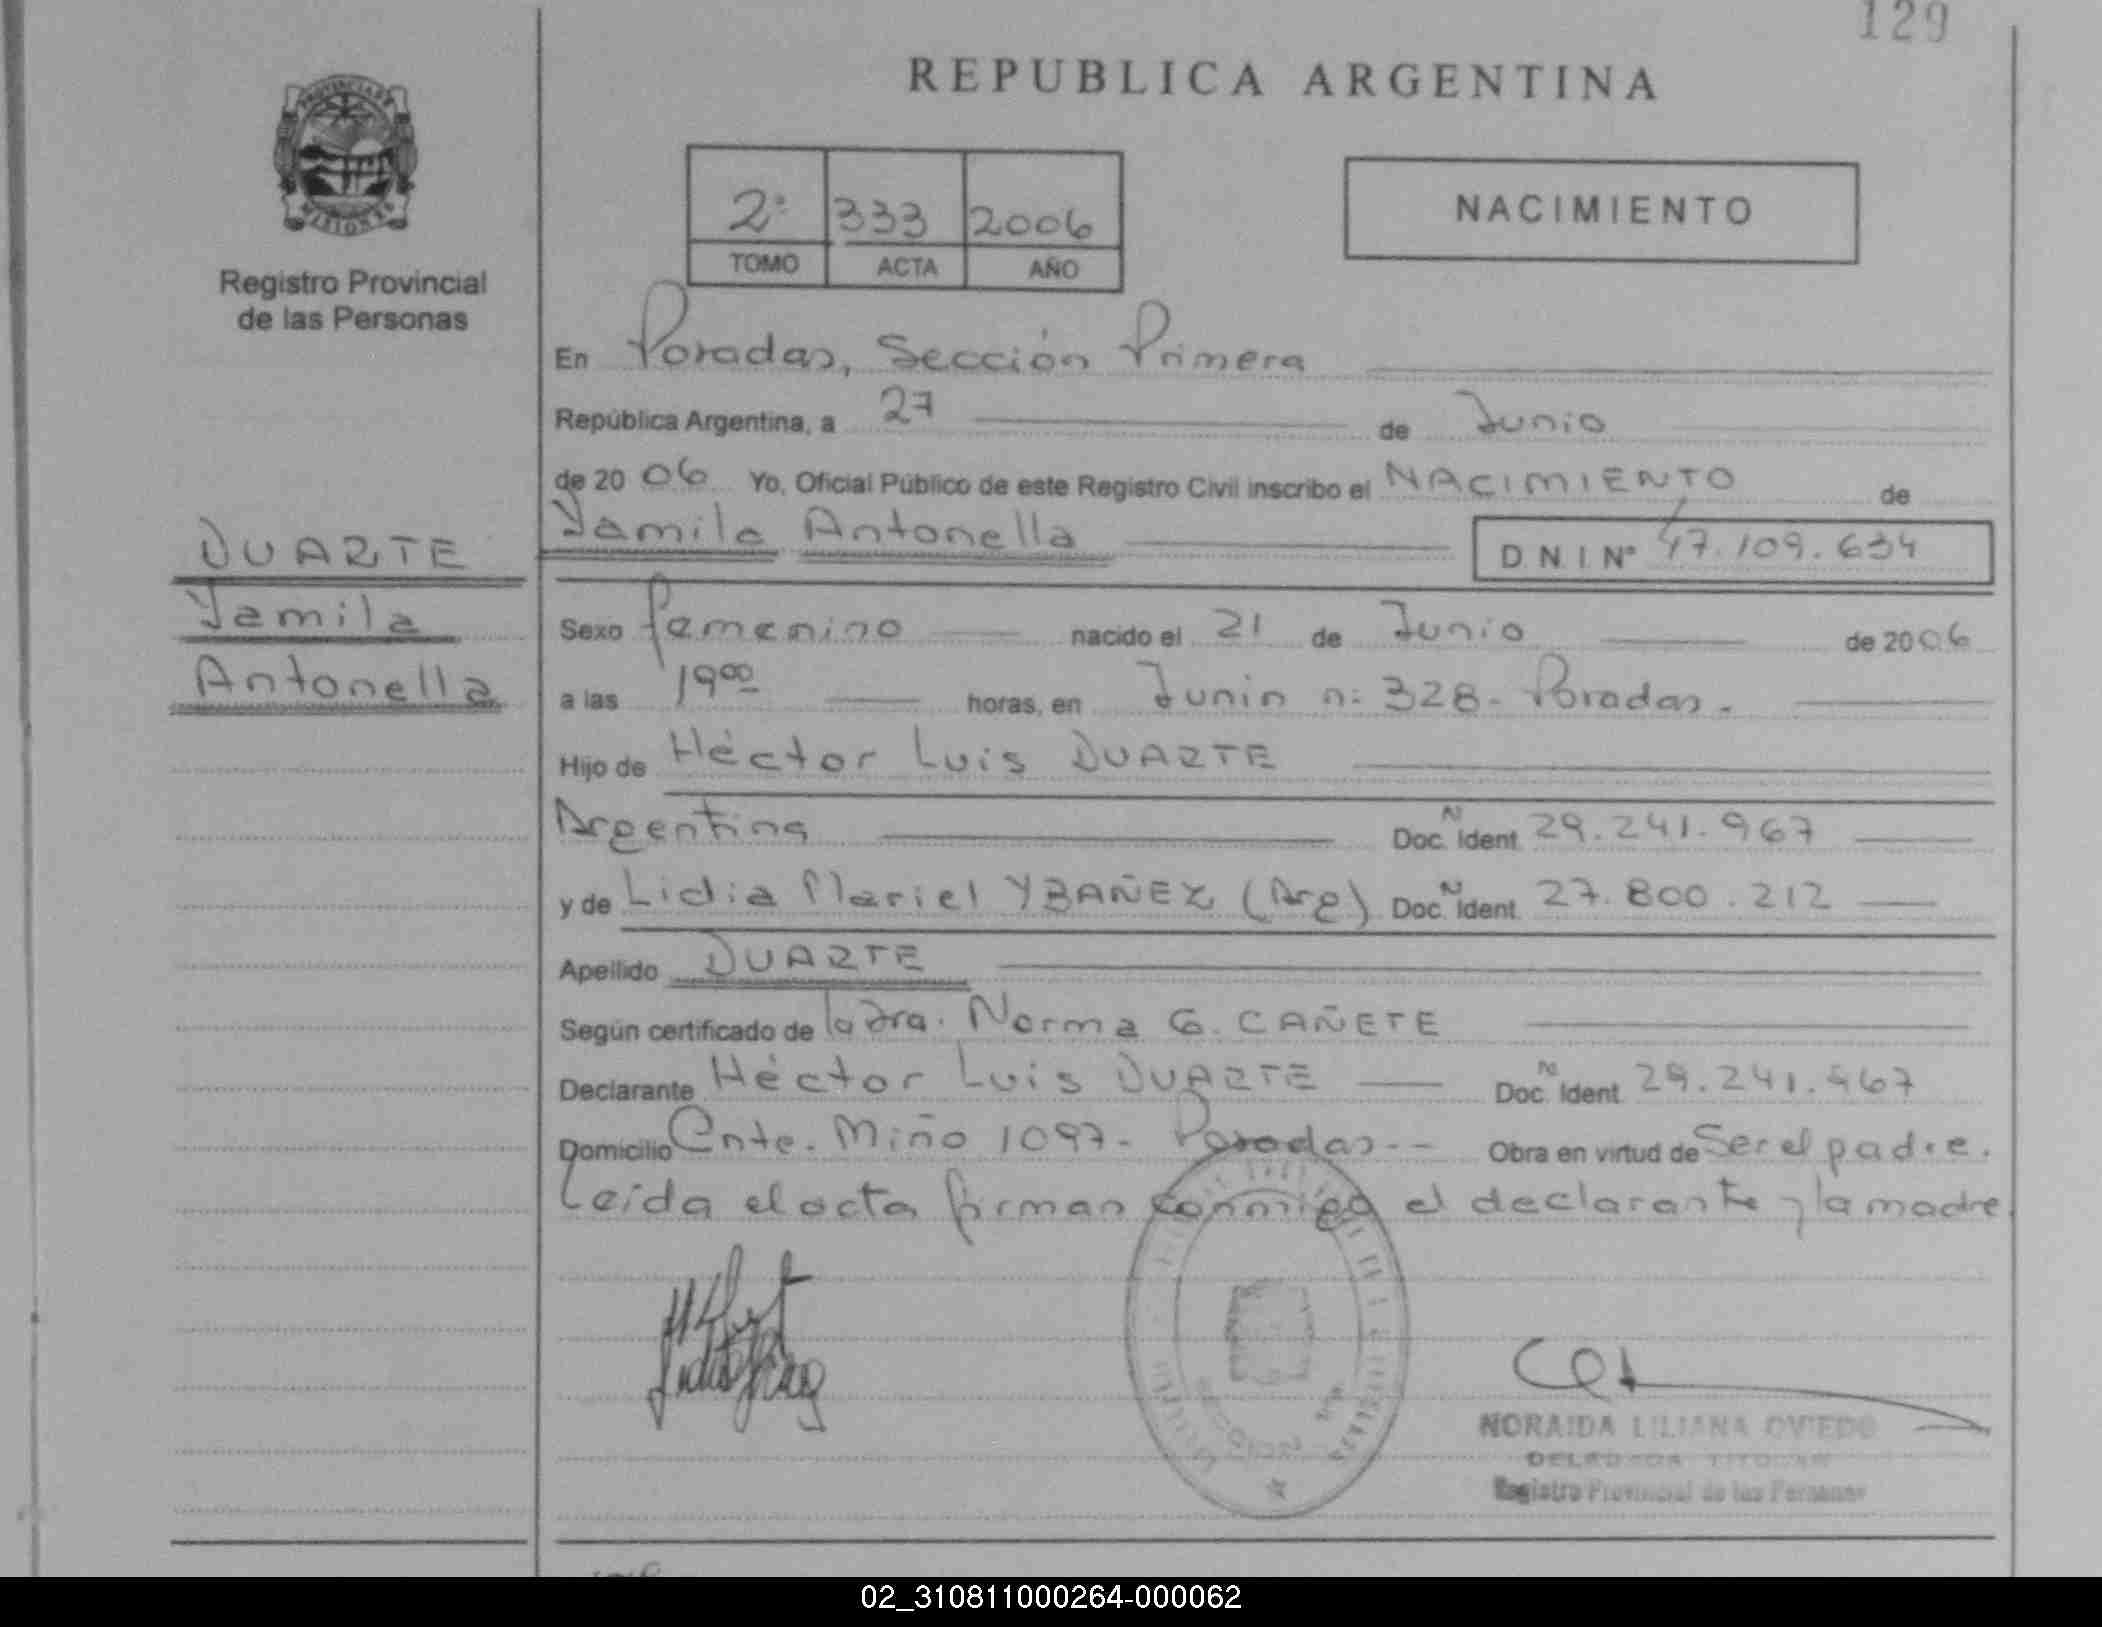 129
REPUBLICA ARGENTINA
PROVINCIA DE
MISIONES
Registro Provincial
de las Personas
2º 333 2006
TOMO ACTA AÑO
NACIMIENTO
En Posadas, Sección Primera
República Argentina, a 27 de Junio
de 2006 Yo, Oficial Público de este Registro Civil inscribo el NACIMIENTO de
Yamila Antonella
D.N.I. Nº 47.109.634
DUARTE
Yamila
Antonella
Sexo femenino nacido el 21 de Junio de 2006
a las 19⁰⁰ horas, en Junín n: 328 - Posadas.
Hijo de Héctor Luis DUARTE
Argentina Doc. Nº Ident. 29.241.967
y de Lidia Mariel YBAÑEZ (Arg) Doc. Nº Ident. 27.800.212
Apellido DUARTE
Según certificado de la Dra. Norma G. CAÑETE
Declarante Héctor Luis DUARTE Doc. Nº Ident. 29.241.967
Domicilio Cnte. Miño 1097 - Posadas -- Obra en virtud de Ser el padre.
Leída el acta firman conmigo el declarante y la madre
NORAIDA LILIANA OVIEDO
DELEGADA TITULAR
Registro Provincial de las Personas
02_310811000264-000062